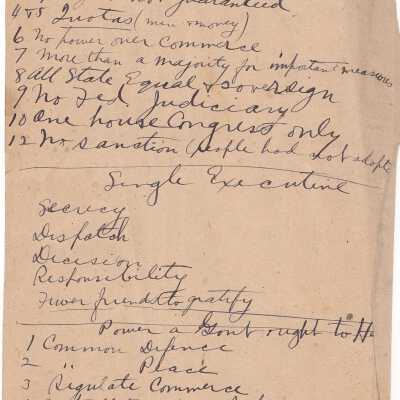 not guaranteed
4 & 5 Quotas (men & money)
6 No power over Commerce
7 More than a majority for important measures
8 All State Equal & sovereign
9 No Fed. Judiciary
10 One house Congress only
12 No sanction (people had not adopte
Single Executive
Secrecy
Dispatch
Decision
Responsibility
Fewer friends to gratify
Power a Gov't ought to Ha
1 Common Defence
2 " Peace
3 Regulate Commerce